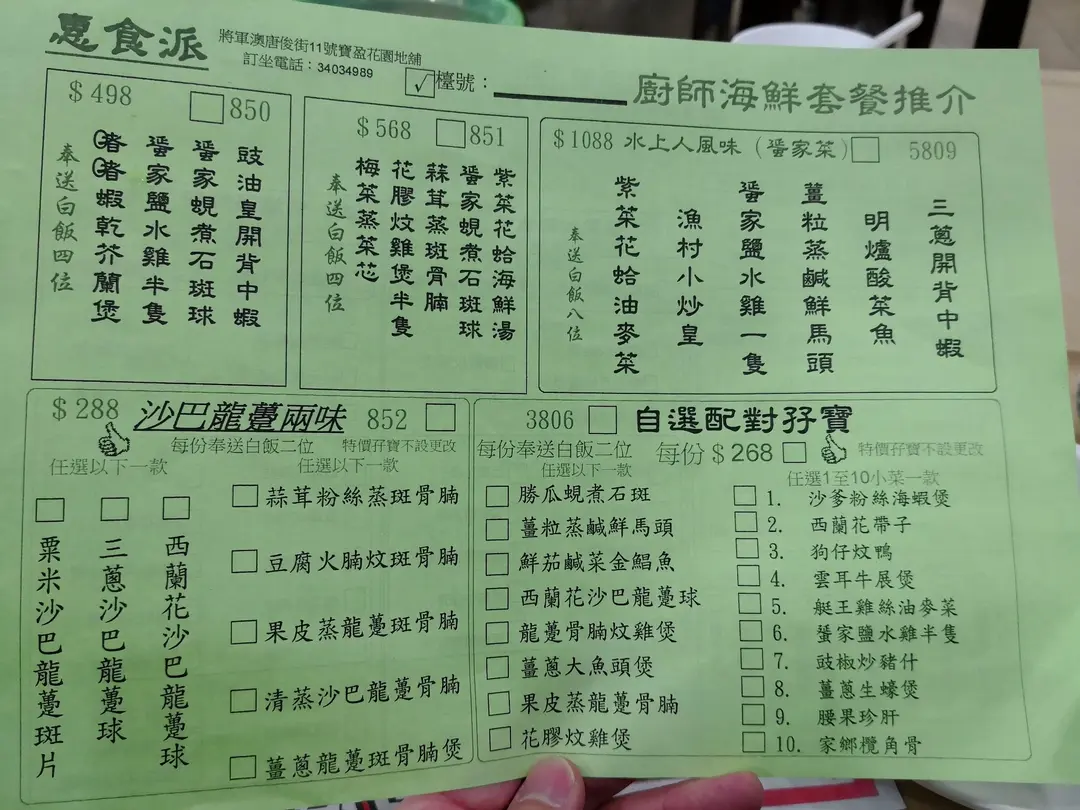 惠食派
將軍澳唐俊街11號寶盈花園地舖
訂坐電話：34034989
✓檯號：
廚師海鮮套餐推介
$498
850
豉油皇開背中蝦
蜑家蜆煮石斑球
蜑家鹽水雞半隻
啫啫蝦乾芥蘭煲
奉送白飯四位
$568
851
紫菜花蛤海鮮湯
蜑家蜆煮石斑球
蒜茸蒸斑骨腩
花膠炆雞煲半隻
梅菜蒸菜芯
奉送白飯四位
$1088 水上人風味（蜑家菜）
5809
三蔥開背中蝦
明爐酸菜魚
薑粒蒸鹹鮮馬頭
蜑家鹽水雞一隻
漁村小炒皇
紫菜花蛤油麥菜
奉送白飯八位
$288 沙巴龍躉兩味 852
每份奉送白飯二位 特價孖寶不設更改
任選以下一款
任選以下一款
西蘭花沙巴龍躉球
三蔥沙巴龍躉球
粟米沙巴龍躉斑片
蒜茸粉絲蒸斑骨腩
豆腐火腩炆斑骨腩
果皮蒸龍躉斑骨腩
清蒸沙巴龍躉骨腩
薑蔥龍躉斑骨腩煲
3806 自選配對孖寶
每份奉送白飯二位 每份$268 特價孖寶不設更改
任選以下一款
勝瓜蜆煮石斑
薑粒蒸鹹鮮馬頭
鮮茄鹹菜金鯧魚
西蘭花沙巴龍躉球
龍躉骨腩炆雞煲
薑蔥大魚頭煲
果皮蒸龍躉骨腩
花膠炆雞煲
任選1至10小菜一款
1. 沙爹粉絲海蝦煲
2. 西蘭花帶子
3. 狗仔炆鴨
4. 雲耳牛展煲
5. 艇王雞絲油麥菜
6. 蜑家鹽水雞半隻
7. 豉椒炒豬什
8. 薑蔥生蠔煲
9. 腰果珍肝
10. 家鄉欖角骨